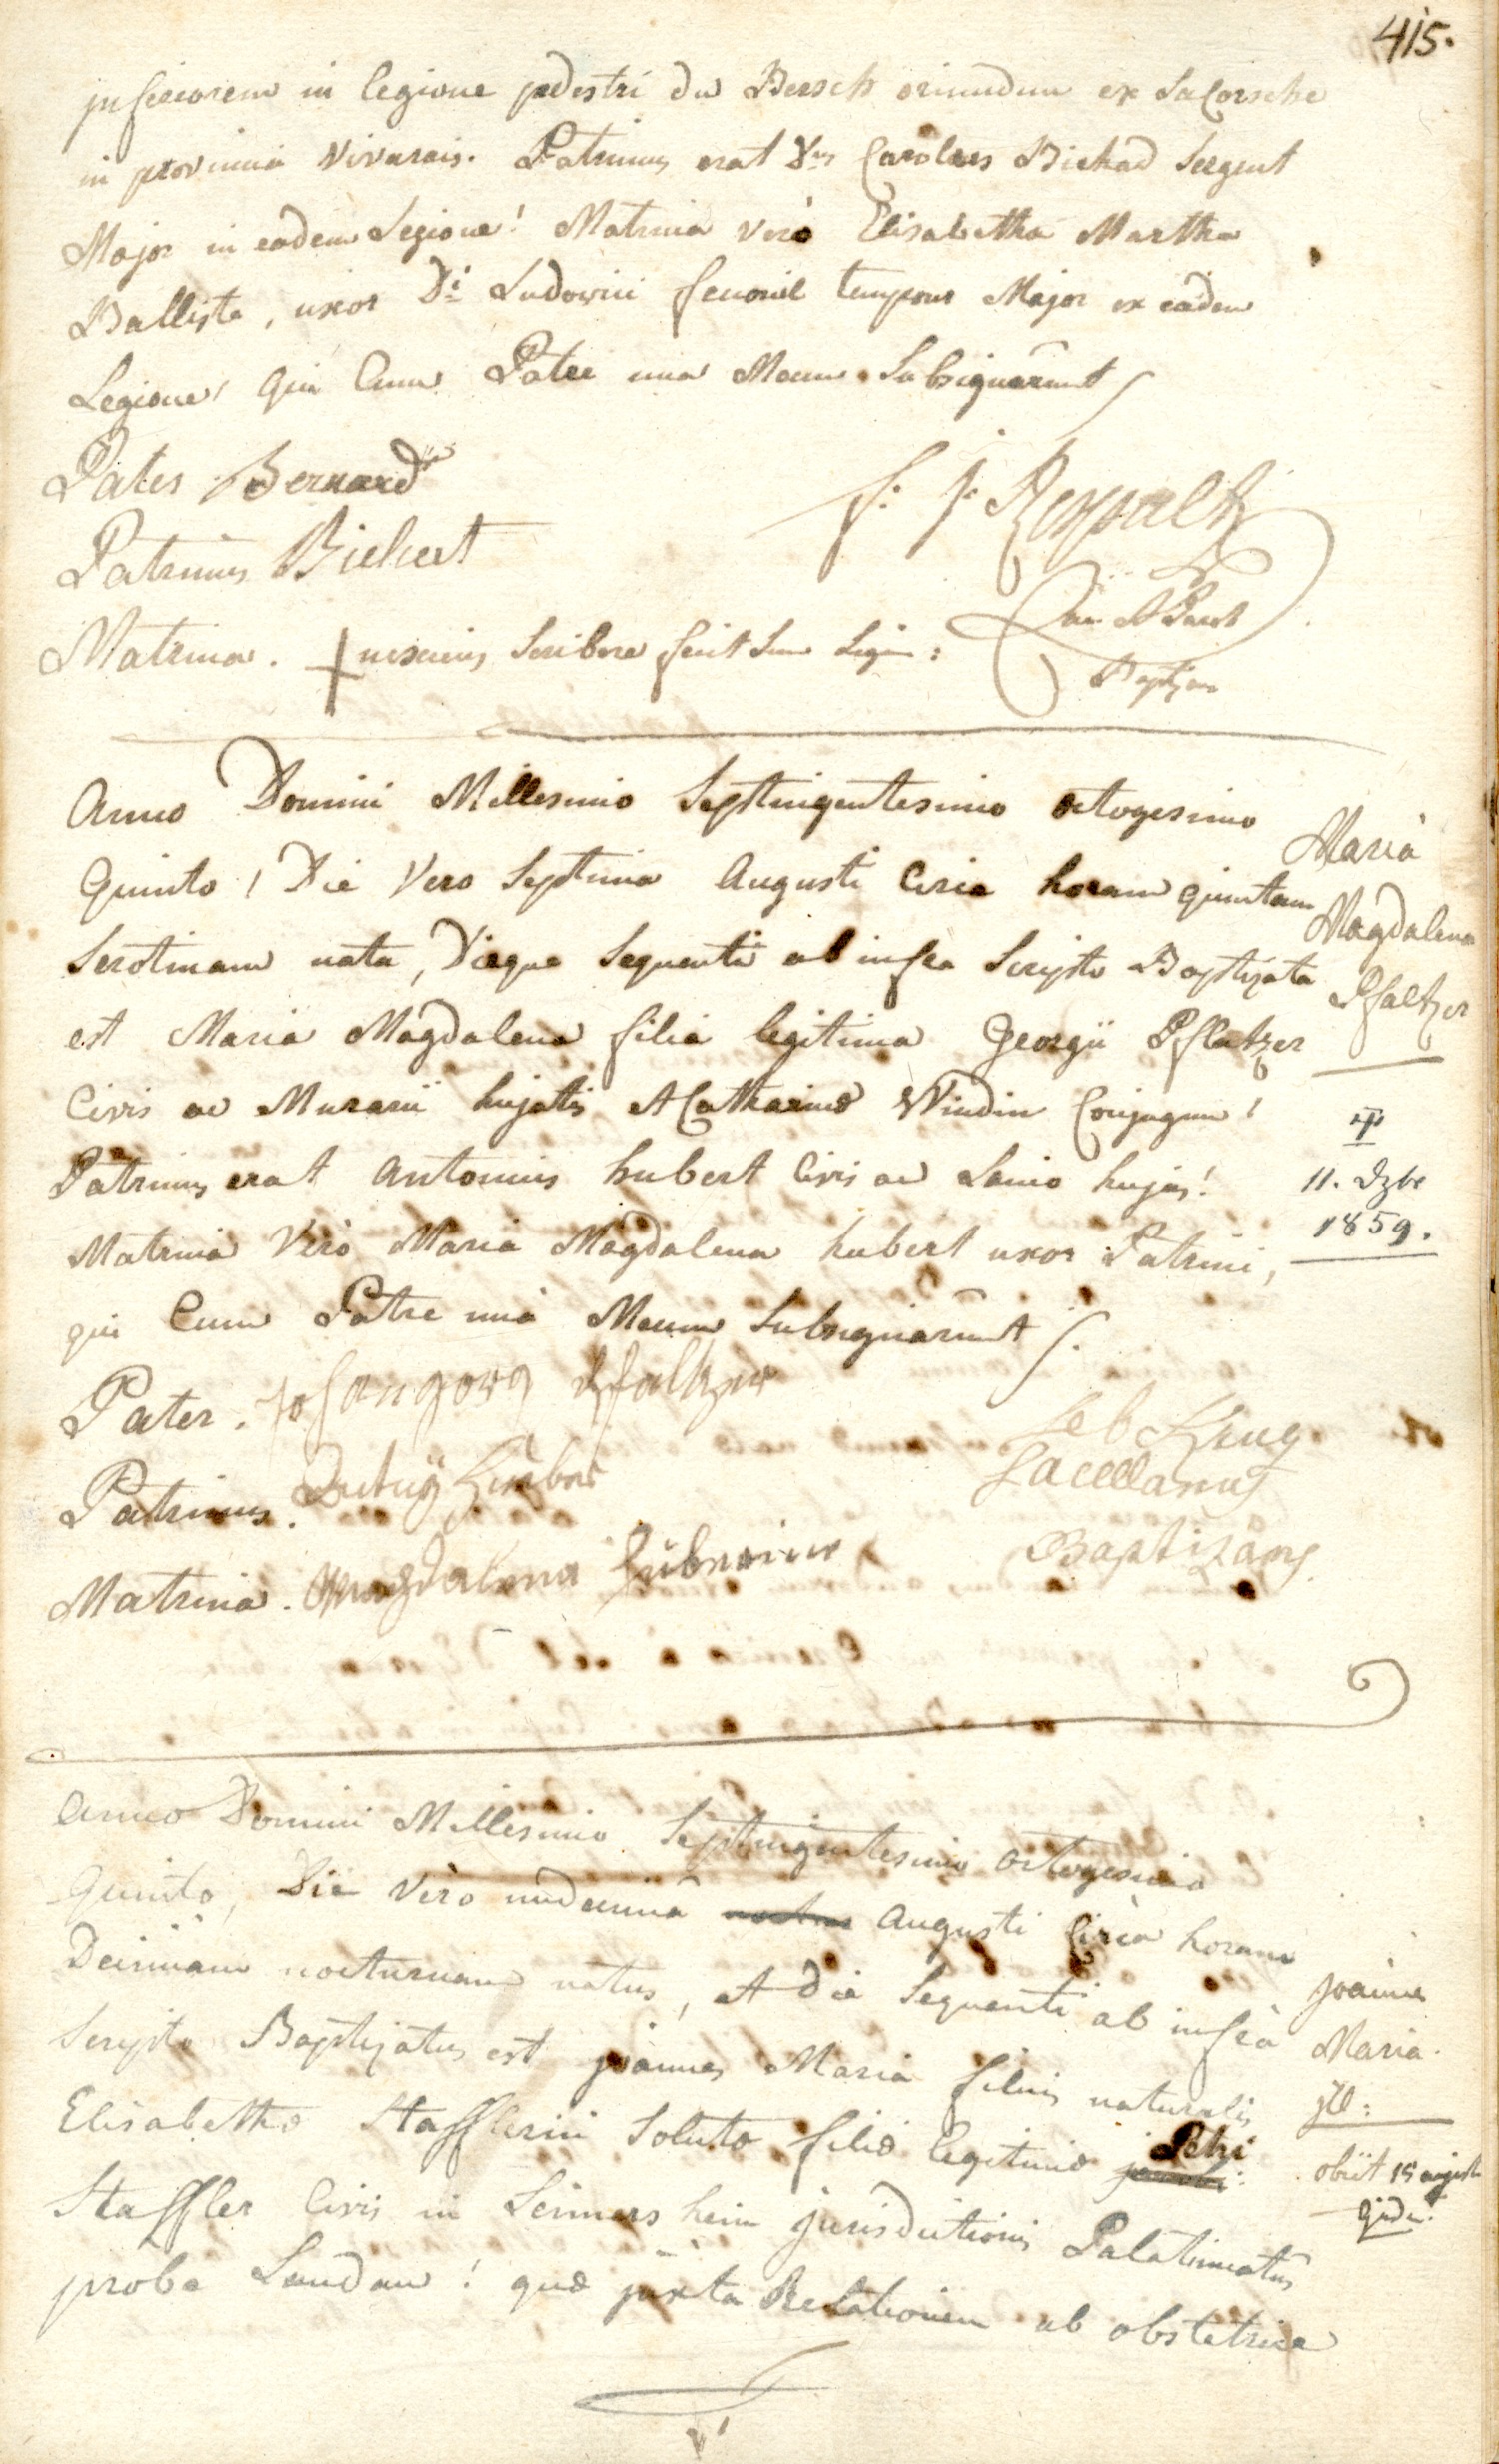 415.
inferiorem in legione pedestri du Bersch oriundum ex LaCorsche
in provincia Vivarais. Patrinus erat Dnus Carolus Biekad Sergent
Major in eadem Legione! Matrina verò Elisabetha Martha
Balliste, uxor Di Ludovici fenouil tempour Major ex eadem
Legione! qui Cum Patre una Mecum Subsignarunt
Pater Bernard
Patrinus Biekert
Matrina. + nescius Scribere fecit Suu Sign:
f: j: Reppaeltz
Can. et Paroch
Baptizans
Anno Domini Millesimo Septingentesimo octogesimo
Quinto! Die Vero Septima Augusti Circa horam quintam
Serotinam nata, Dieque Sequenti ab infra Scripto Baptizata
est Maria Magdalena filia legitima Georgii Pflatzer
Civis ac Murarii hujatis et Catharinæ Windin Conjugum!
Patrinus erat Antonius hubert Civis ac Lanio hujas!
Matrina Verò Maria Magdalena hubert uxor Patrini,
qui Cum Patre unà Mecum Subsignarunt
Maria
Magdalena
Pfaltzer
11. Xbre
1859.
Pater. Johangorg Pfaltzer
Patrinus. Antoni Huber
Matrina. Magdalena Huberin
Seb Krug
Sacellanus
Baptizans
Anno Domini Millesimo Septingentesimo octogesimo
Quinto, Die Vèro undecimâ Augusti Circa horam
Decimam nocturnam natus, et die Sequenti ab infrà
Scripto Baptizatus est joannes Maria filius naturalis
Elisabethæ Stafflerin Solutæ filiæ legitimæ Petri
Staffler Civis in Leimersheim jurisdictionis Palatinatûs
probe Landau! quæ juxta Relationem ab obstetrice
joannes
Maria.
ill:
obiit 15 augusti
ejusd.